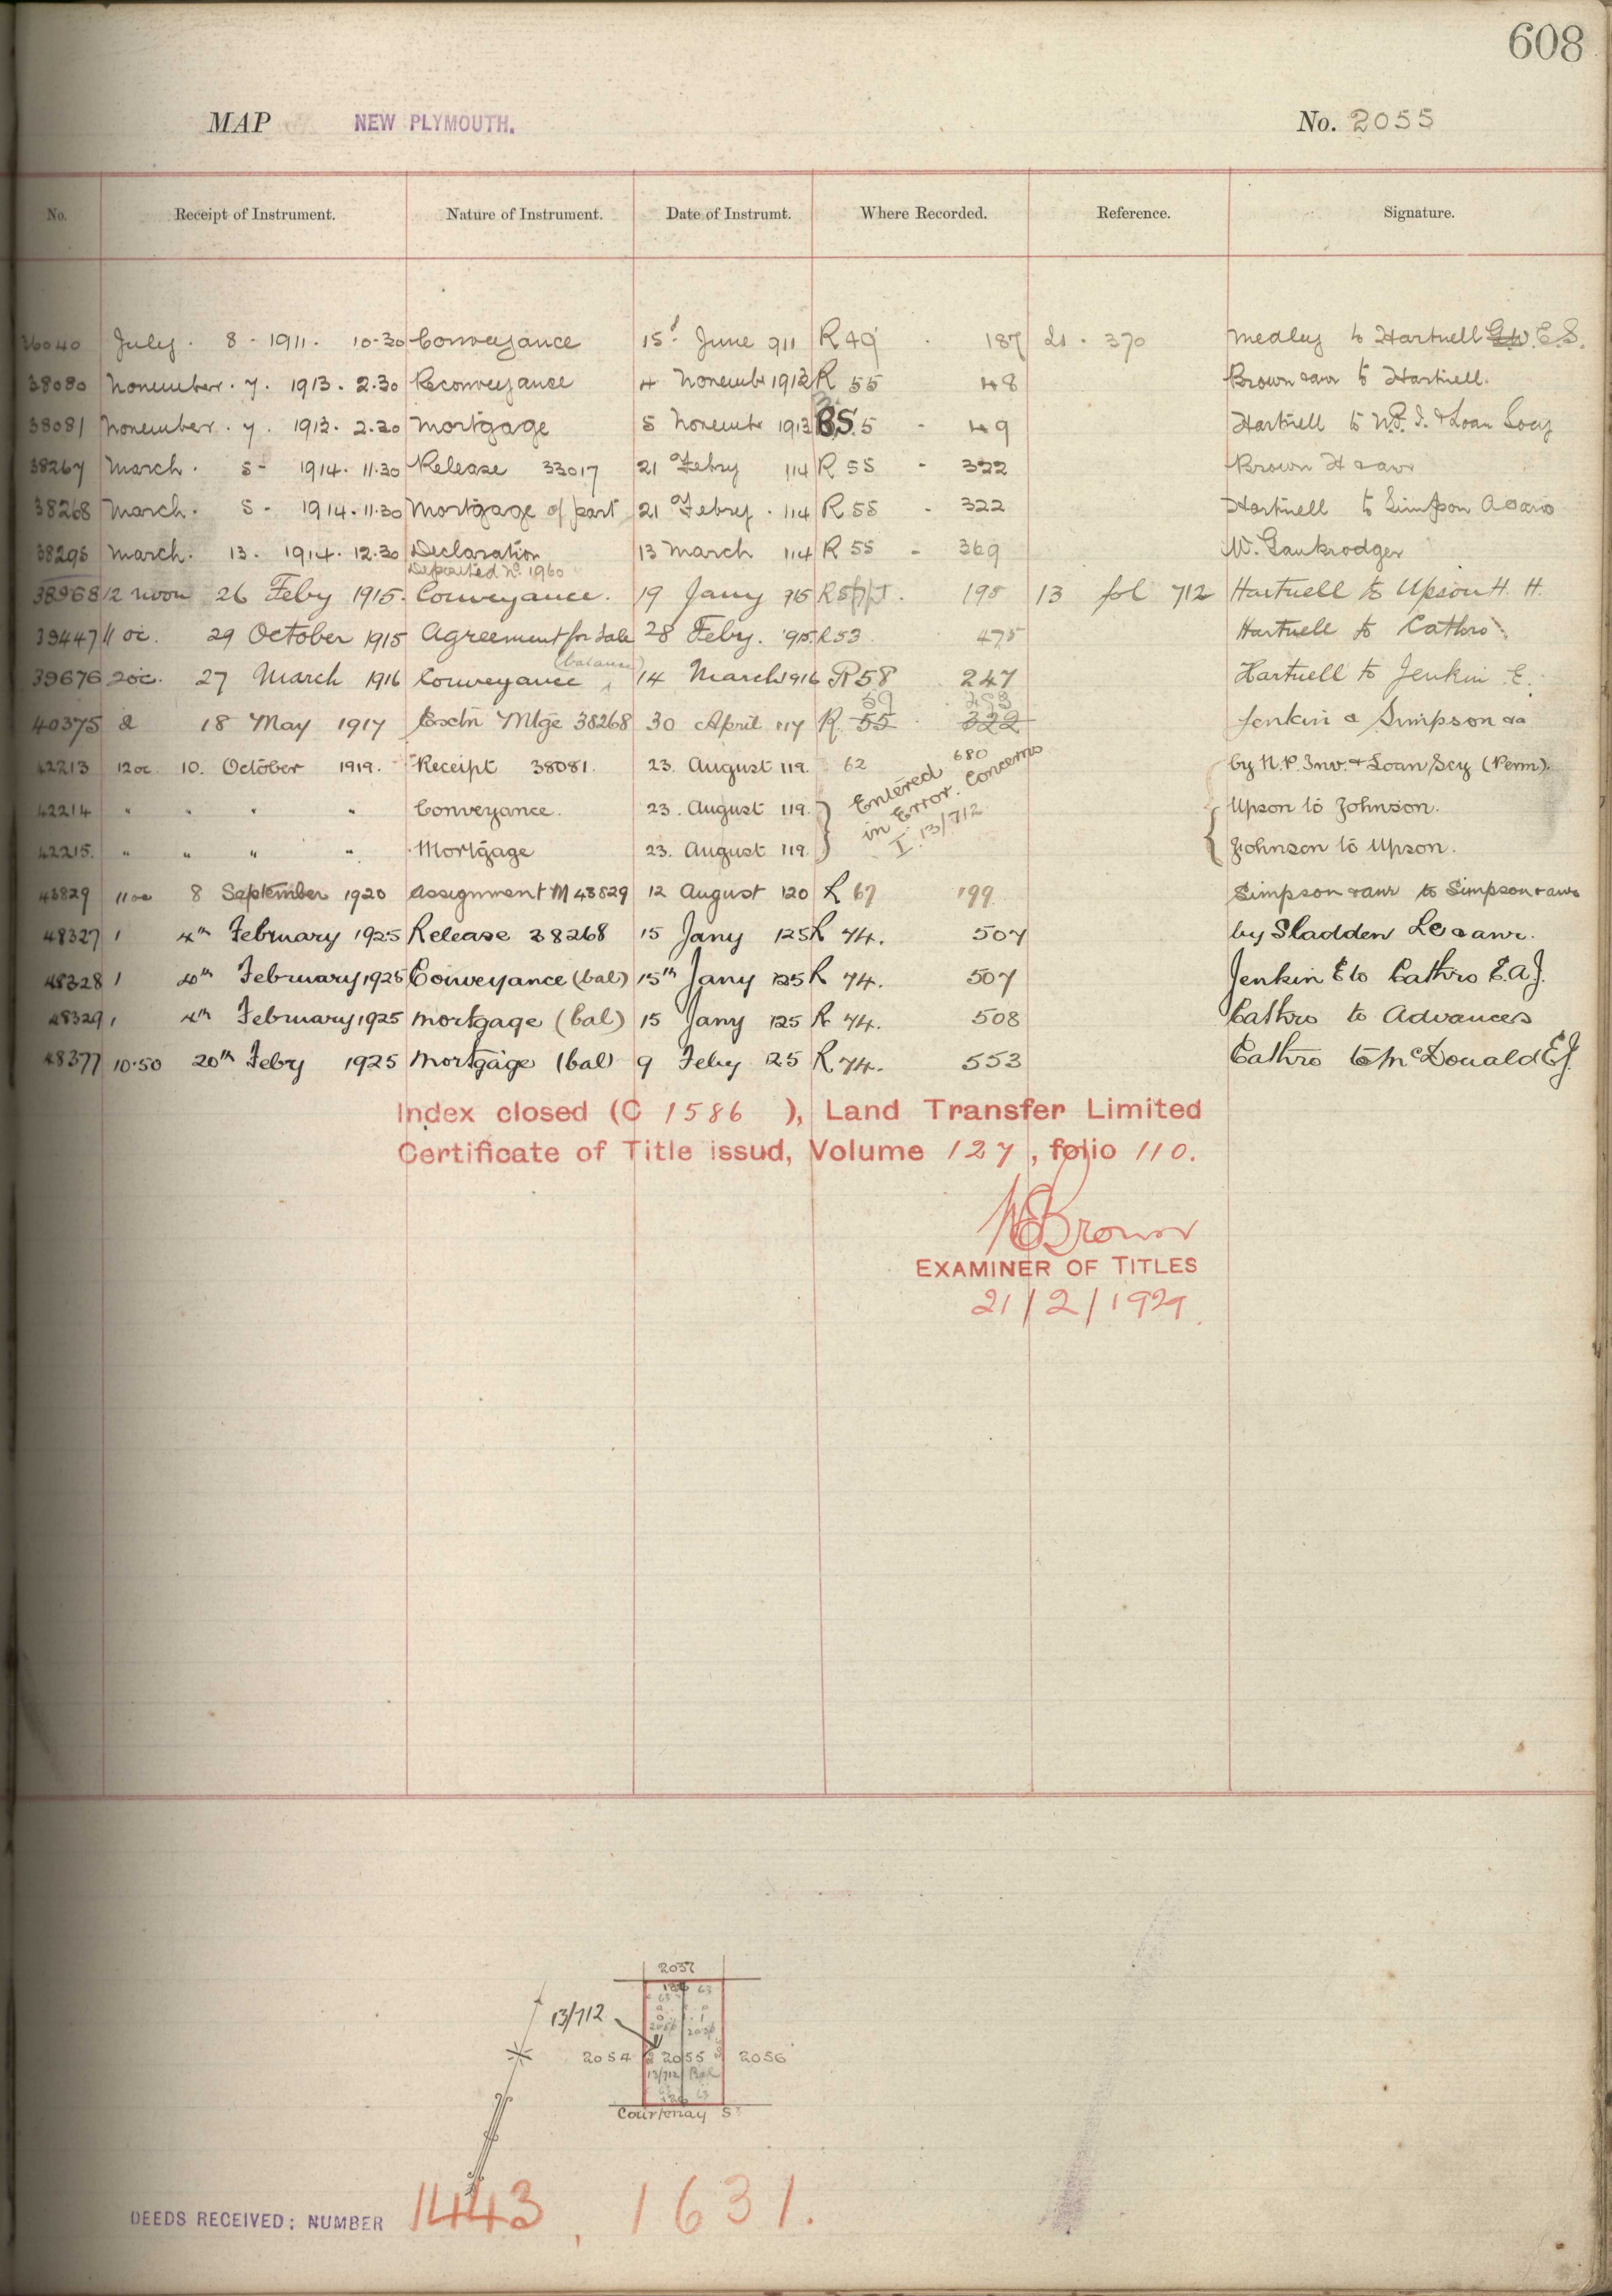 608
MAP NEW PLYMOUTH. No. 2055
No. Receipt of Instrument. Nature of Instrument. Date of Instrumt. Where Recorded. Reference. Signature.
36040 July. 8 - 1911. 10-30 Conveyance 15 June 911 R 49 187 21 . 370 Medley to Hartnell E.S.
38080 November. 7. 1913. 2.30 Reconveyance 4 November 1913 R 55 48 Brown & anr to Hartnell.
38081 November. 7. 1913. 2.30 Mortgage 5 November 1913 49 Hartnell to N.P. I. & Loan Socy
38267 March. 5 - 1914. 11.30 Release 33017 21 Febry 114 R 55 - 322 Brown H & anr
38268 March. 5 - 1914. 11.30 Mortgage of part 21 Febry. 114 R 55 - 322 Hartnell to Simpson
38295 March. 13. 1914. 12.30 Declaration 13 March 114 R 55 - 369 W. Gankrodger
Deposited No. 1960
38968 12 noon 26 Feby 1915. Conveyance. 19 Jany 915 195 13 fol 712 Hartnell to Upson H. H.
39447 11 oc. 29 October 1915 Agreement for Sale 28 Feby. 915 R 53 475 Hartnell to Cathro
(balance)
39676 2 oc. 27 March 1916 Conveyance 14 March 1916 R 58 247 Hartnell to Jenkin E.
59 293
40375 2 18 May 1917 Extn Mtge 38268 30 April 117 R. 55 322 Jenkin & Simpson
42213 12 oc. 10. October 1919. Receipt 38081. 23. August 119. 62 680 by N.P. Inv. & Loan Scy (Perm).
42214 " " " " Conveyance. 23. August 119. Upson to Johnson.
42215. " " " " Mortgage 23. August 119. Johnson to Upson.
Entered
in Error. Concerns
I. 13/712
43829 11 oc 8 September 1920 Assignment M 43829 12 August 120 R 67 199 Simpson & anr to Simpson & anr
48327 1 4th February 1925 Release 38268 15 Jany 125 R 74. 507 by Sladden & anr.
48328 1 4th February 1925 Conveyance (bal) 15th Jany 125 R 74. 507 Jenkin E to Cathro E.A.J.
48329 1 4th February 1925 Mortgage (bal) 15 Jany 125 R 74. 508 Cathro to Advances
48377 10.50 20th Feby 1925 Mortgage (bal) 9 Feby 25 R 74. 553 Cathro to McDonald E J.
Index closed (C 1586 ), Land Transfer Limited
Certificate of Title issud, Volume 127, folio 110.
Brown
EXAMINER OF TITLES
21/2/1929.
2037
13/712
2054 2055 2056
13/712 Bal
Courtenay St
DEEDS RECEIVED: NUMBER 1443, 1631.